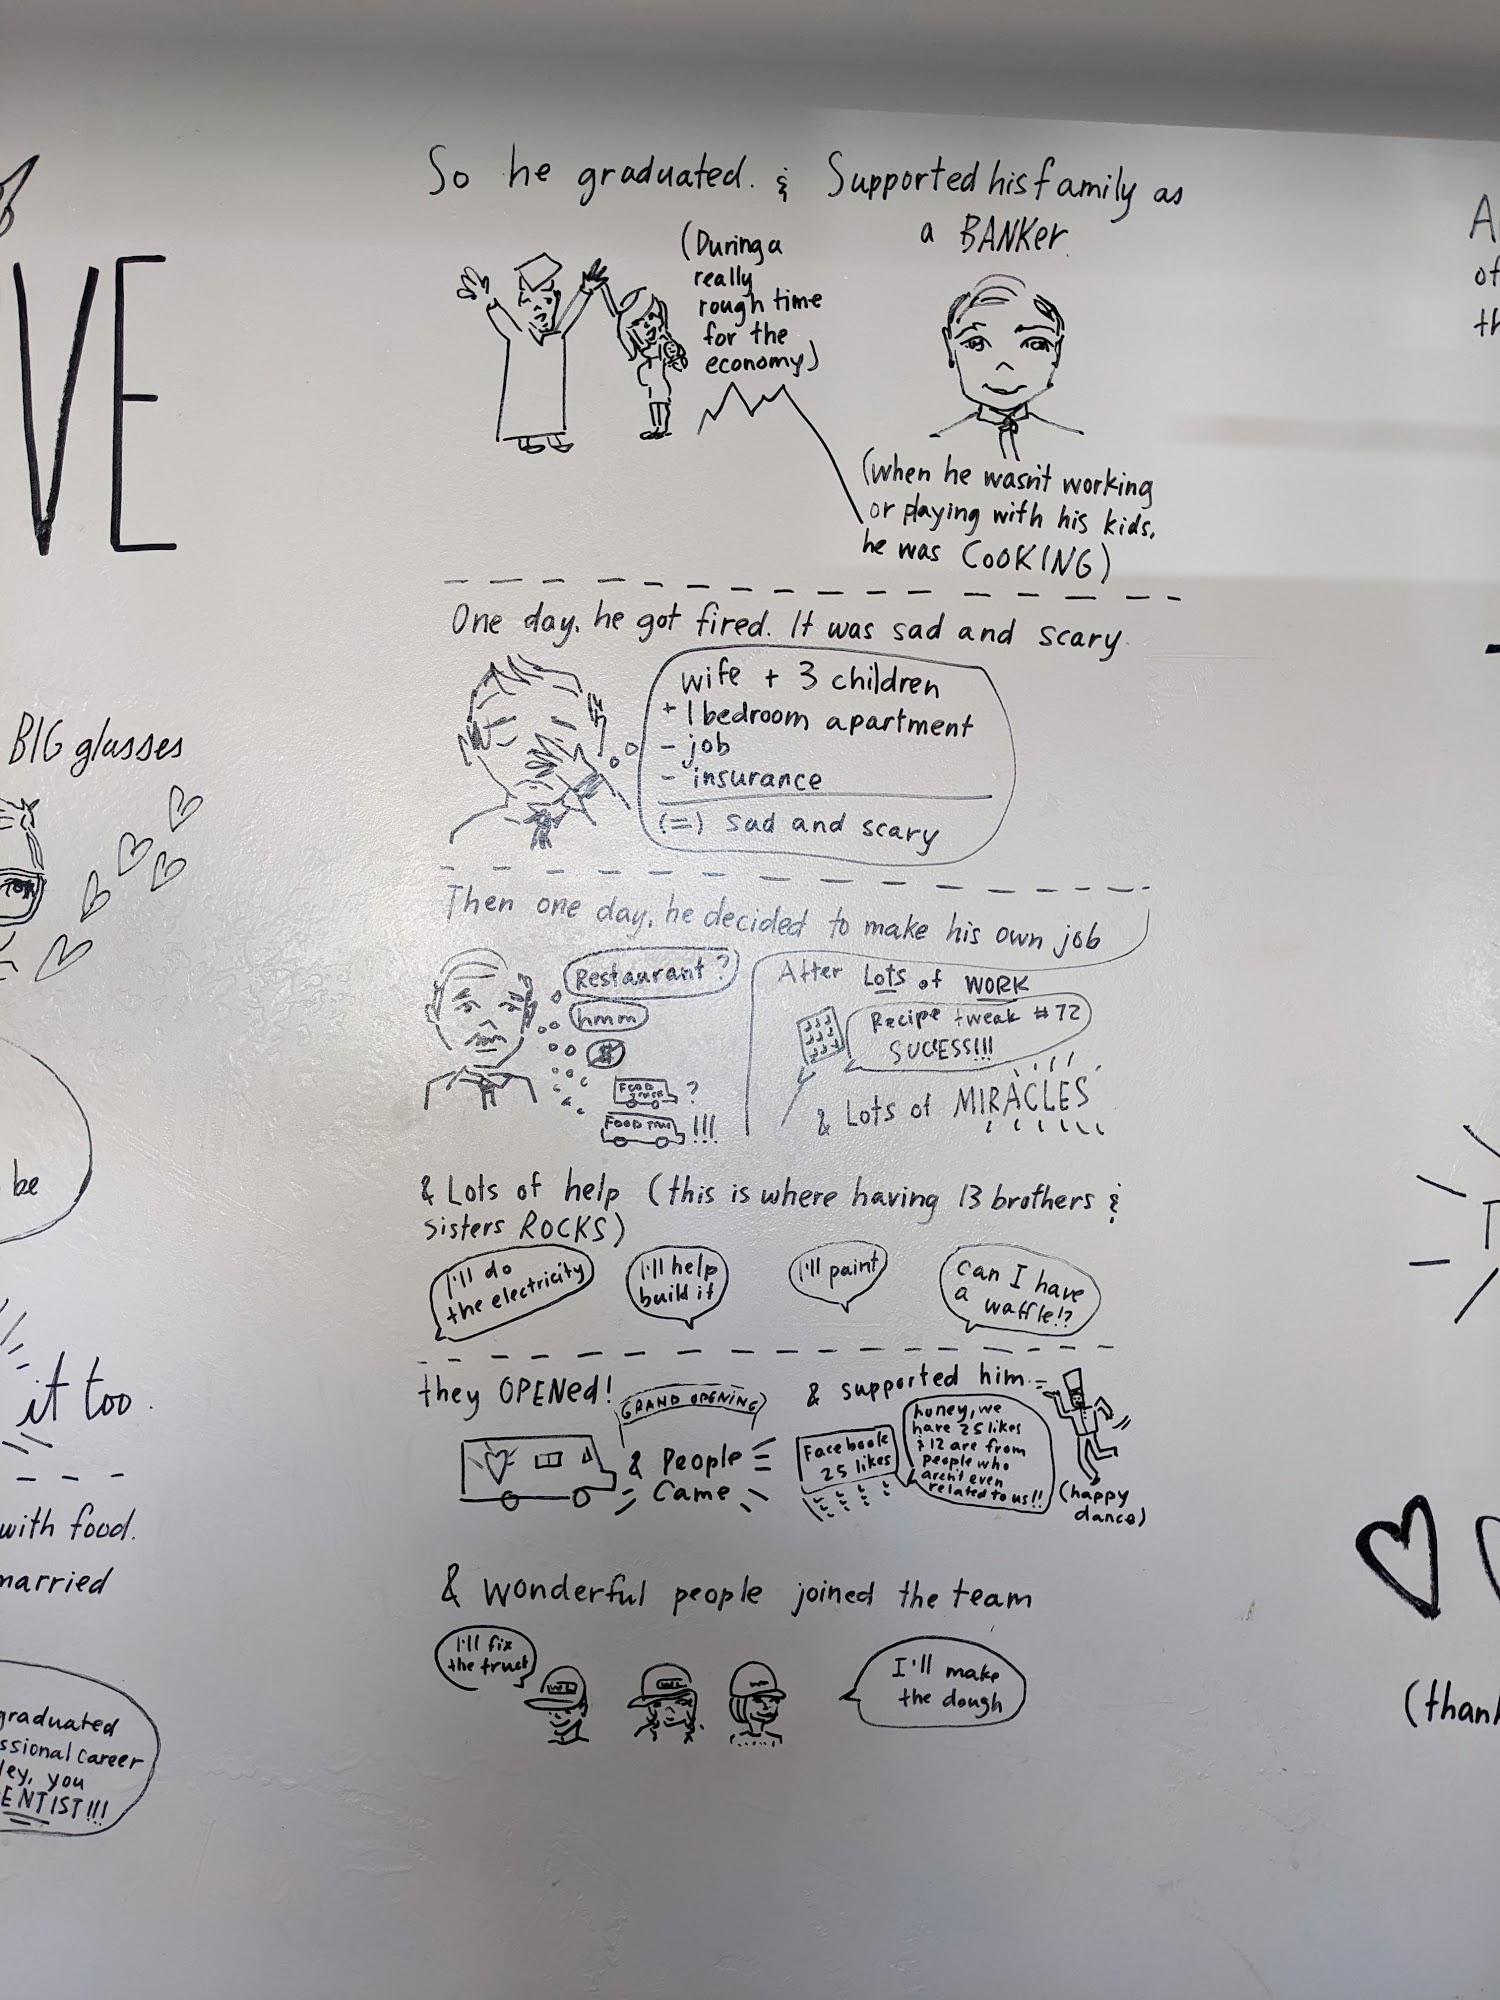 VE
BIG glasses
be
it too.
with food.
married
graduated
ssional career
ley, you
ENTIST!!!
So he graduated. & Supported his family as
a BANKer.
(During a
really
rough time
for the
economy)
(when he wasn't working
or playing with his kids,
he was COOKING)
One day, he got fired. It was sad and scary.
wife + 3 children
+ 1 bedroom apartment
- job
- insurance
(=) sad and scary
Then one day, he decided to make his own job
Restaurant?
hmm
$
FOOD
TRUCK ?
FOOD TRUCK !!!
After Lots of WORK
Recipe tweak #72
SUCESS!!!
& Lots of MIRACLES
& Lots of help (this is where having 13 brothers &
sisters ROCKS)
I'll do
the electricity
I'll help
build it
I'll paint
can I have
a waffle!?
they OPENed!
GRAND OPENING
& People
came
& supported him
Facebook
25 likes
honey, we
have 25 likes
& 12 are from
people who
aren't even
related to us!!
(happy
dance)
& wonderful people joined the team
I'll fix
the truck
I'll make
the dough
of
th
(thank